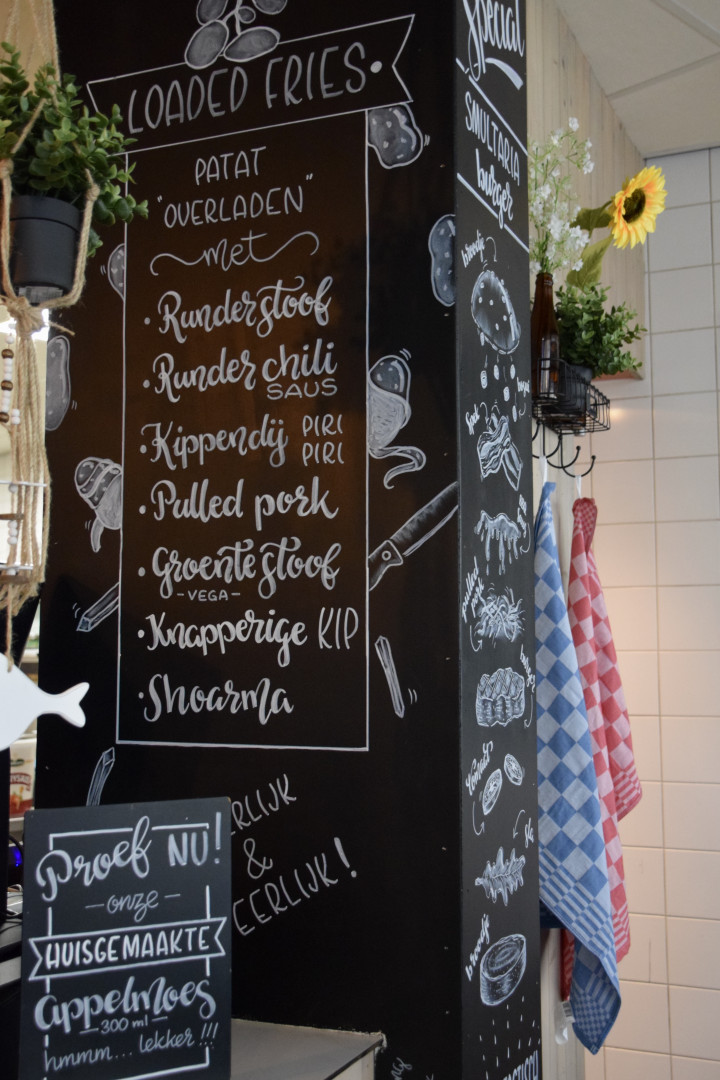 LOADED FRIES
PATAT
"OVERLADEN"
met
• Runderstoof
• Runder chili
SAUS
• Kippendij PIRI
PIRI
• Pulled pork
• Groentestoof
- VEGA -
• Knapperige KIP
• Shoarma
ERLIJK
&
EERLIJK!
Proef NU!
- onze -
HUISGEMAAKTE
appelmoes
- 300 ml -
hmmm... lekker!!!
Special
SMULTARIA
burger
broodje
pulled
pork
Tomaat
sla
broodje